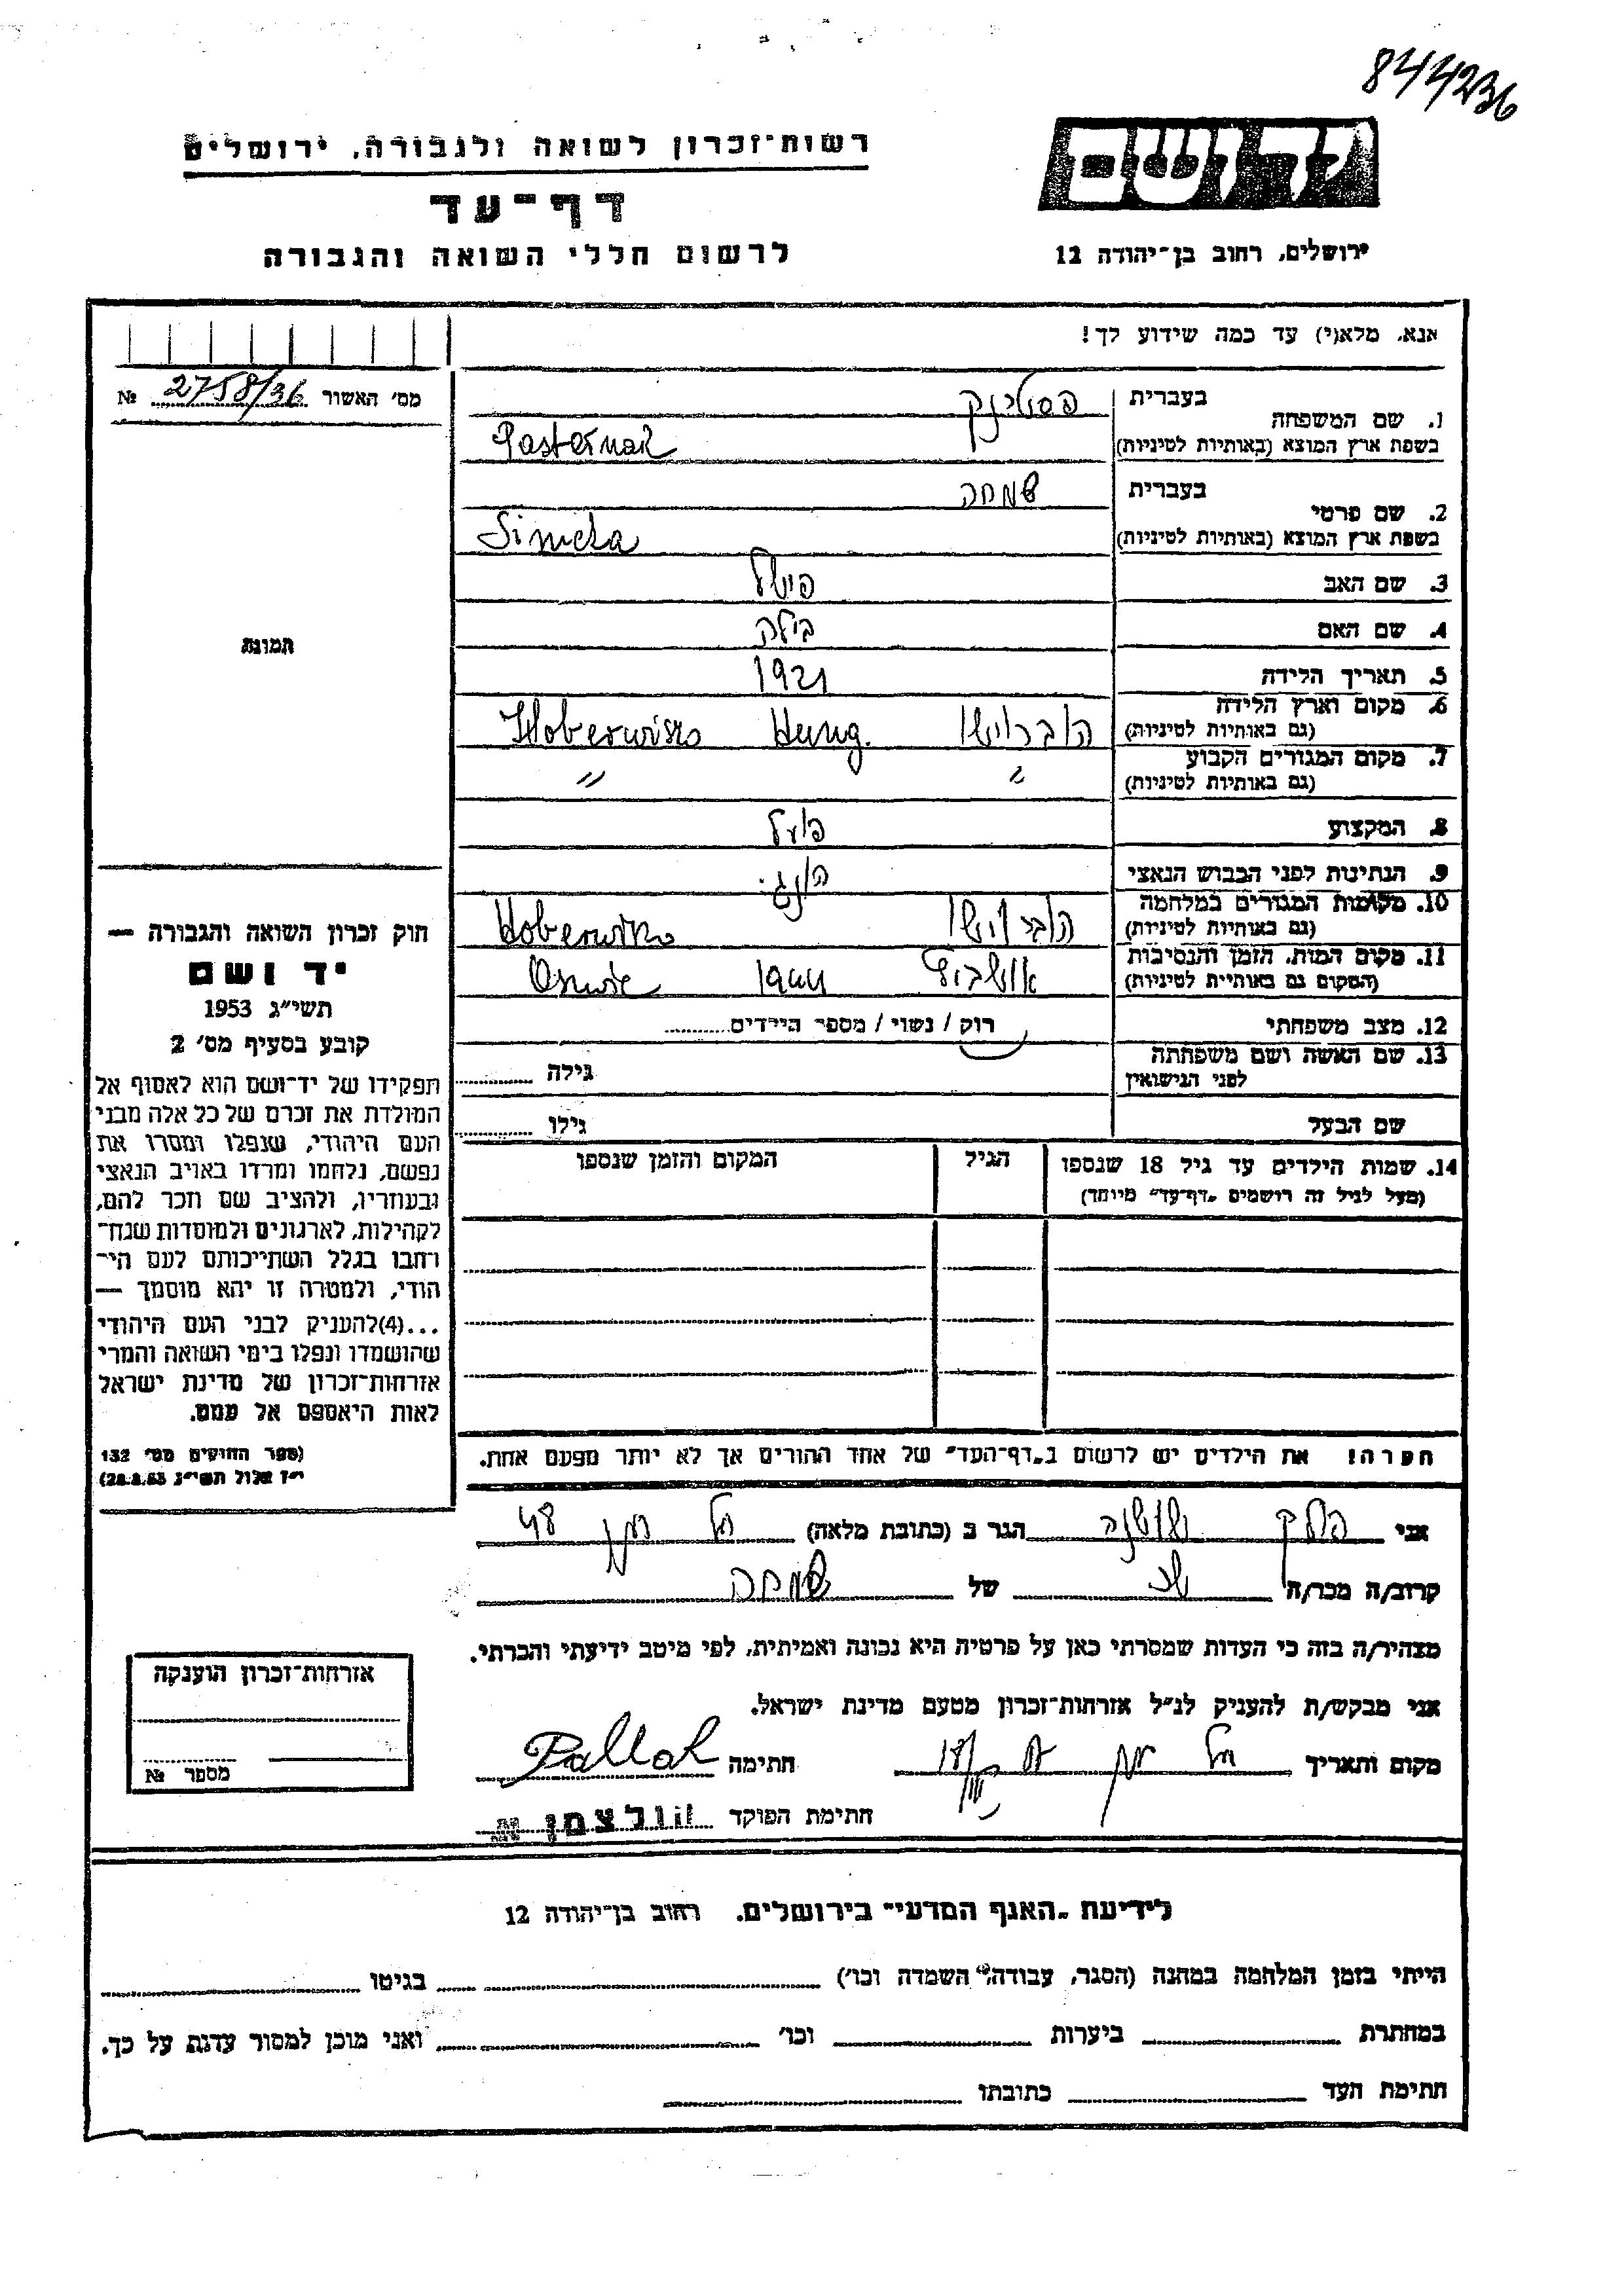 844236
יד ושם
רשות־זכרון לשואה ולגבורה, ירושלים
דף־עד
לרשום חללי השואה והגבורה
ירושלים, רחוב בן־יהודה 12
אנא, מלא(י) עד כמה שידוע לך!
מס׳ האשור 2758/36 №
1. שם המשפחה
בעברית פסטרנק
בשפת ארץ המוצא (באותיות לטיניות) Pasternak
2. שם פרטי
בעברית שמחה
בשפת ארץ המוצא (באותיות לטיניות) Simcha
3. שם האב
4. שם האם בילה
5. תאריך הלידה 1921
6. מקום וארץ הלידה
(גם באותיות לטיניות) Hung.
7. מקום המגורים הקבוע
(גם באותיות לטיניות) " "
8. המקצוע פועל
9. הנתינות לפני הכבוש הנאצי הונג.
10. מקומות המגורים במלחמה
(גם באותיות לטיניות)
11. מקום המות, הזמן והנסיבות
(המקום גם באותיית לטיניות) אושביץ 1944
12. מצב משפחתי רוק / נשוי / מספר הילדים
13. שם האשה ושם משפחתה
לפני הנישואין גילה
שם הבעל גילו
14. שמות הילדים עד גיל 18 שנספו הגיל המקום והזמן שנספו
(מעל לגיל זה רושמים „דף־עד” מיוחד)
הערה! את הילדים יש לרשום ב„דף־העד” של אחד ההורים אך לא יותר מפעם אחת.
תמונה
חוק זכרון השואה והגבורה —
יד ושם
תשי״ג 1953
קובע בסעיף מס׳ 2
תפקידו של יד־ושם הוא לאסוף אל
המולדת את זכרם של כל אלה מבני
העם היהודי, שנפלו ומסרו את
נפשם, נלחמו ומרדו באויב הנאצי
ובעוזריו, ולהציב שם וזכר להם,
לקהילות, לארגונים ולמוסדות שנח־
רחבו בגלל השתייכותם לעם הי־
הודי, ולמטרה זו יהא מוסמך —
...(4)להעניק לבני העם היהודי
שהושמדו ונפלו בימי השואה והמרי
אזרחות־זכרון של מדינת ישראל
לאות היאספם אל עמם.
(ספר החוקים מס׳ 132
י״ז אלול תשי״ג 28.8.53)
אני פלק שושנה הגר ב (כתובת מלאה) 48
קרוב/ה מכר/ה של שמחה
מצהיר/ה בזה כי העדות שמסרתי כאן על פרטיה היא נכונה ואמיתית, לפי מיטב ידיעתי והכרתי.
אני מבקש/ת להעניק לנ״ל אזרחות־זכרון מטעם מדינת ישראל.
מקום ותאריך חתימה Pallak
חתימת הפוקד הולצמן
אזרחות־זכרון הוענקה
מספר №
לידיעת „האגף המדעי” בירושלים, רחוב בן־יהודה 12
הייתי בזמן המלחמה במחנה (הסגר, עבודה, השמדה וכו׳) בגיטו
במחתרת ביערות וכו׳ ואני מוכן למסור עדות על כך.
חתימת העד כתובתו